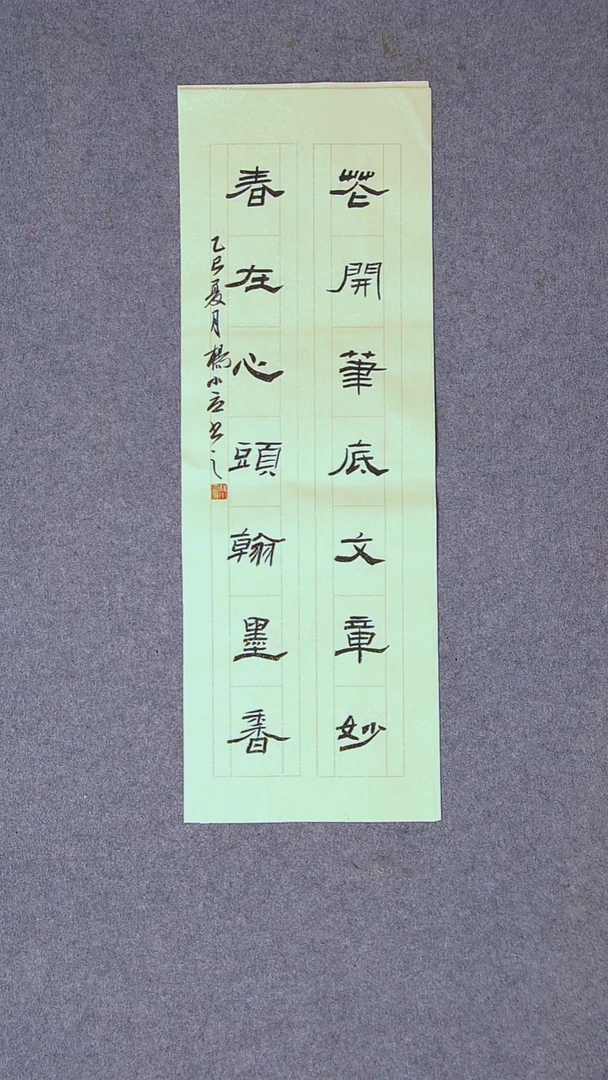 花開筆底文章妙
春在心頭翰墨香
乙巳夏月楊小